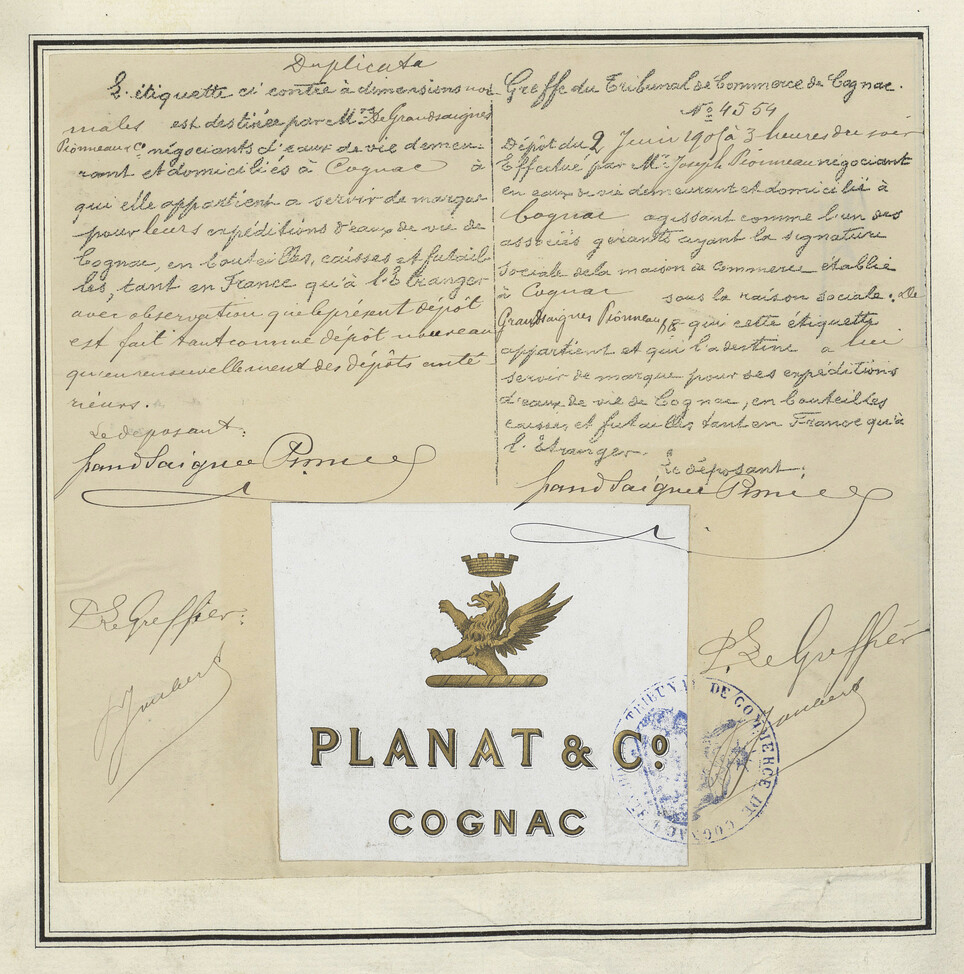 Duplicata
L'étiquette ci contre à dimensions nor-
males est destinée par Mrs De Grandsaignes
Pionneau & Co négociants d'eaux de vie demeu-
rant et domiciliés à Cognac à
qui elle appartient a servir de marque
pour leurs expéditions d'eaux de vie de
Cognac, en bouteilles, caisses et futail-
les, tant en France qu'à l'Etranger
avec observation que le présent dépôt
est fait tant comme dépôt nouveau
qu'en renouvellement des dépôts anté-
rieurs.
Le déposant:
Greffe du Tribunal de Commerce de Cognac.
No 4554
Dépôt du 2 Juin 1905 à 3 heures du soir
Effectué par Mr Joseph Pionneau négociant
en eaux de vie demeurant et domicilié à
Cognac agissant comme l'un des
associés gérants ayant la signature
sociale de la maison de commerce établie
à Cognac sous la raison sociale: De
Grandsaignes Pionneau qui cette étiquette
appartient et qui l'a destine a lui
servir de marque pour ses expéditions
d'eaux de vie de Cognac, en bouteilles
caisses, et futailles tant en France qu'à
l'Etranger.
Le déposant:
P. Le Greffier:
Joubert
PLANAT & Co.
COGNAC
P. Le Greffier
Joubert
TRIBUNAL DE COMMERCE DE COGNAC